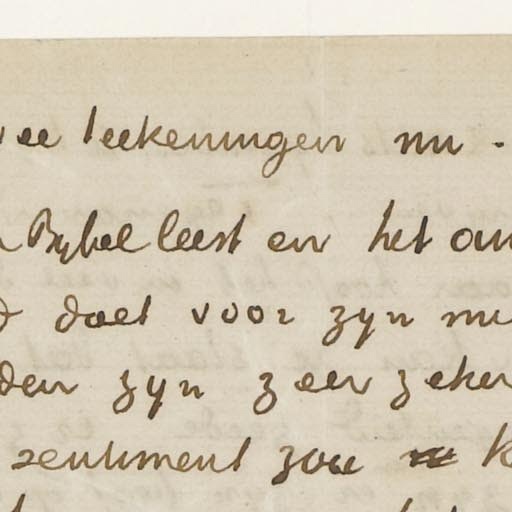 teekeningen nu -
Bybel leest en het
doet voor zyn
zyn zeer zeker
sentiment zou